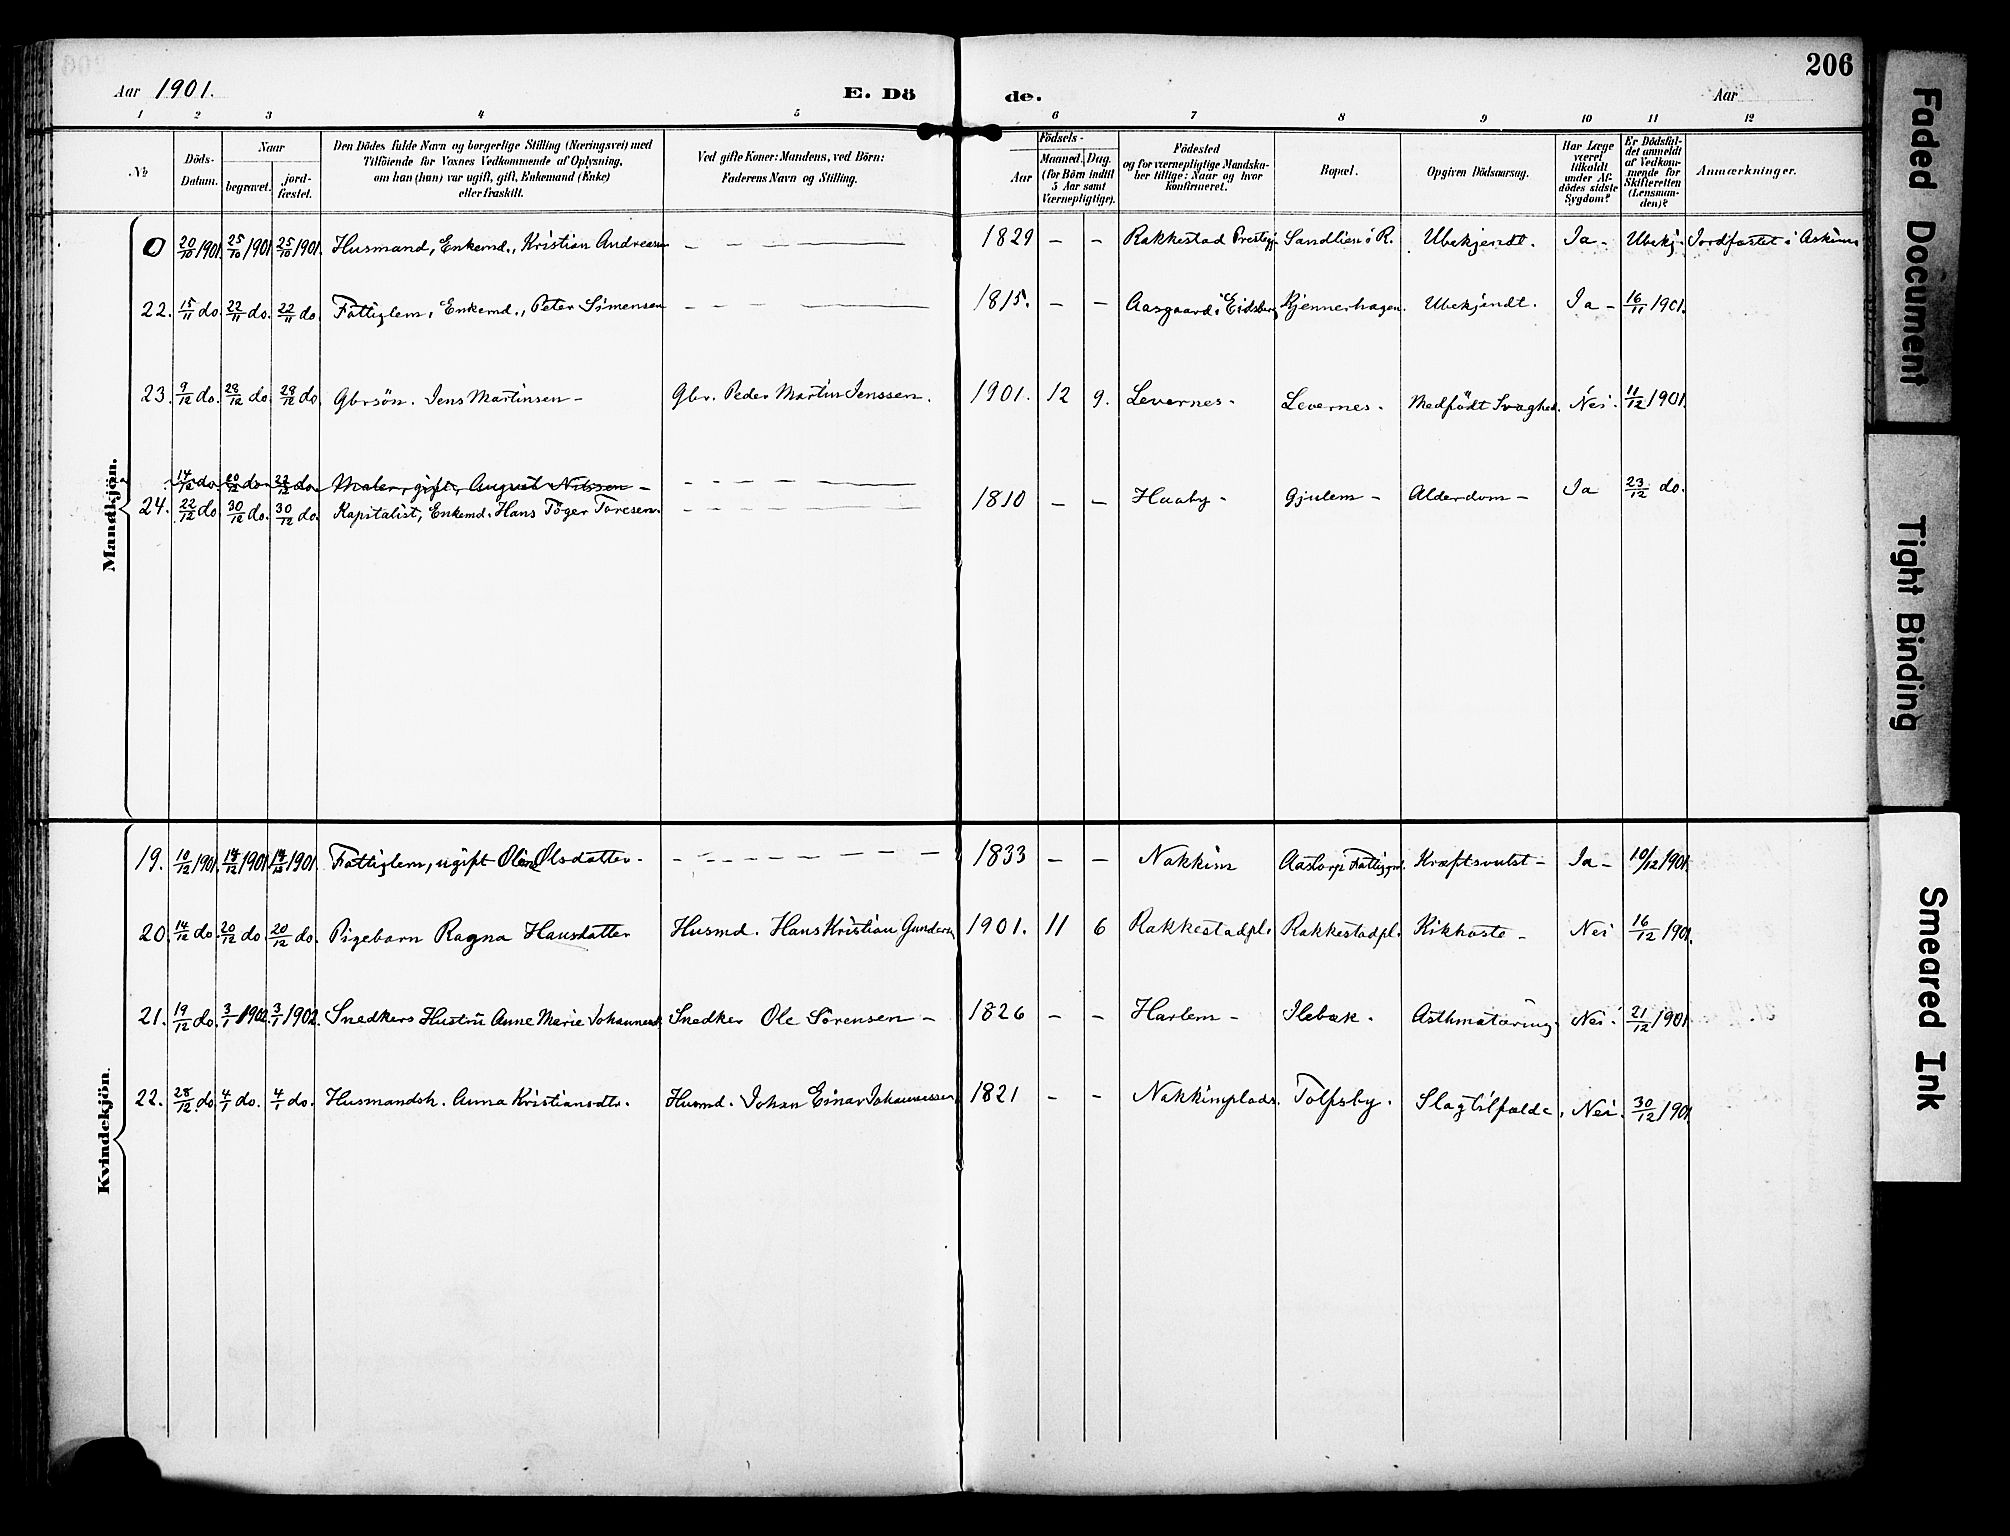 206
Aar 1901.
E. Dö de.
Aar
1 2 3 4 5 6 7 8 9 10 11 12
№
Döds-Datum.
Naar
begravet.
jord-fæstet.
Den Dödes fulde Navn og borgerlige Stilling (Næringsvei) med
Tilföiende for Voxnes Vedkommende af Oplysning,
om han (hun) var ugift, gift, Enkemand (Enke)
eller fraskilt.
Ved gifte Koner: Mandens, ved Börn:
Faderens Navn og Stilling.
Födsels-
Aar
Maaned. Dag.
(for Börn indtil
5 Aar samt
Værnepligtige).
Födested
og for værnepligtige Mandska-
ber tillige: Naar og hvor
konfirmeret.
Bopæl.
Opgiven Dödsaarsag.
Har Læge
været
tilkaldt
under Af-
dödes sidste
Sygdom?
Er Dödsfal-
det anmeldt
af Vedkom-
mende for
Skifteretten
(Lensman-
den)?
Anmærkninger.
Mandkjön.
0 20/10 1901 25/10 1901 25/10 1901. Husmand, Enkemd., Kristian Andreasen — — — — 1829 — — Rakkestad Prestegj. Sandlien i R. Ubekjendt. Ja - Ubekj. Jordfæstet i Askim
22. 15/11 do. 22/11 do. 22/11 do. Fattiglem, Enkemd., Peter Simensen — — — — 1815. — — Aasgaard i Eidsberg Kjennerhagen. Ubekjendt. Ja - 16/11 1901.
23. 9/12 do. 29/12 do. 29/12 do. Gbrsön. Jens Martinsen - Gbr. Peder Martin Jenssen. 1901. 12 9. Levernes - Levernes - Medfödt Svaghed. Nei. 11/12 1901.
14/12 do. 20/12 do. 22/12 do. Maler, gift, August Nilssen - — — — —
24. 22/12 do. 30/12 do. 30/12 do. Kapitalist, Enkemd. Hans Töger Toresen. — — — — 1810 — — Haaby - Gjulem - Alderdom - Ja 23/12 do.
Kvindekjön.
19. 10/12 1901. 14/12 1901. 14/12 1901. Fattiglem, ugift Oline Olsdatter. — — — — 1833 — — Nakkim Aastorp Fattiggrd. Kræftsvulst - Ja - 10/12 1901.
20 14/12 do. 20/12 do 20/12 do. Pigebarn Ragna Hansdatter Husmd. Hans Kristian Gundersen 1901. 11 6 Rakkestadpl. Rakkestadpl. Kikhoste - Nei 16/12 1901.
21. 19/12 do. 3/1 1902. 3/1 1902. Snedkers Hustru Anne Marie Johannesd. Snedker Ole Sörensen - 1826 — — Harlem - Ilebæk. Asthmatæring. Nei. 21/12 1901
22. 28/12 do. 4/1 do. 4/1 do. Husmandsk. Anna Kristiansdtr. Husmd. Johan Einar Johannessen 1821 — — Nakkimplads. Tolfsby. Slagtilfælde. Nei. 30/12 1901.
Faded Document
Tight Binding
Smeared Ink